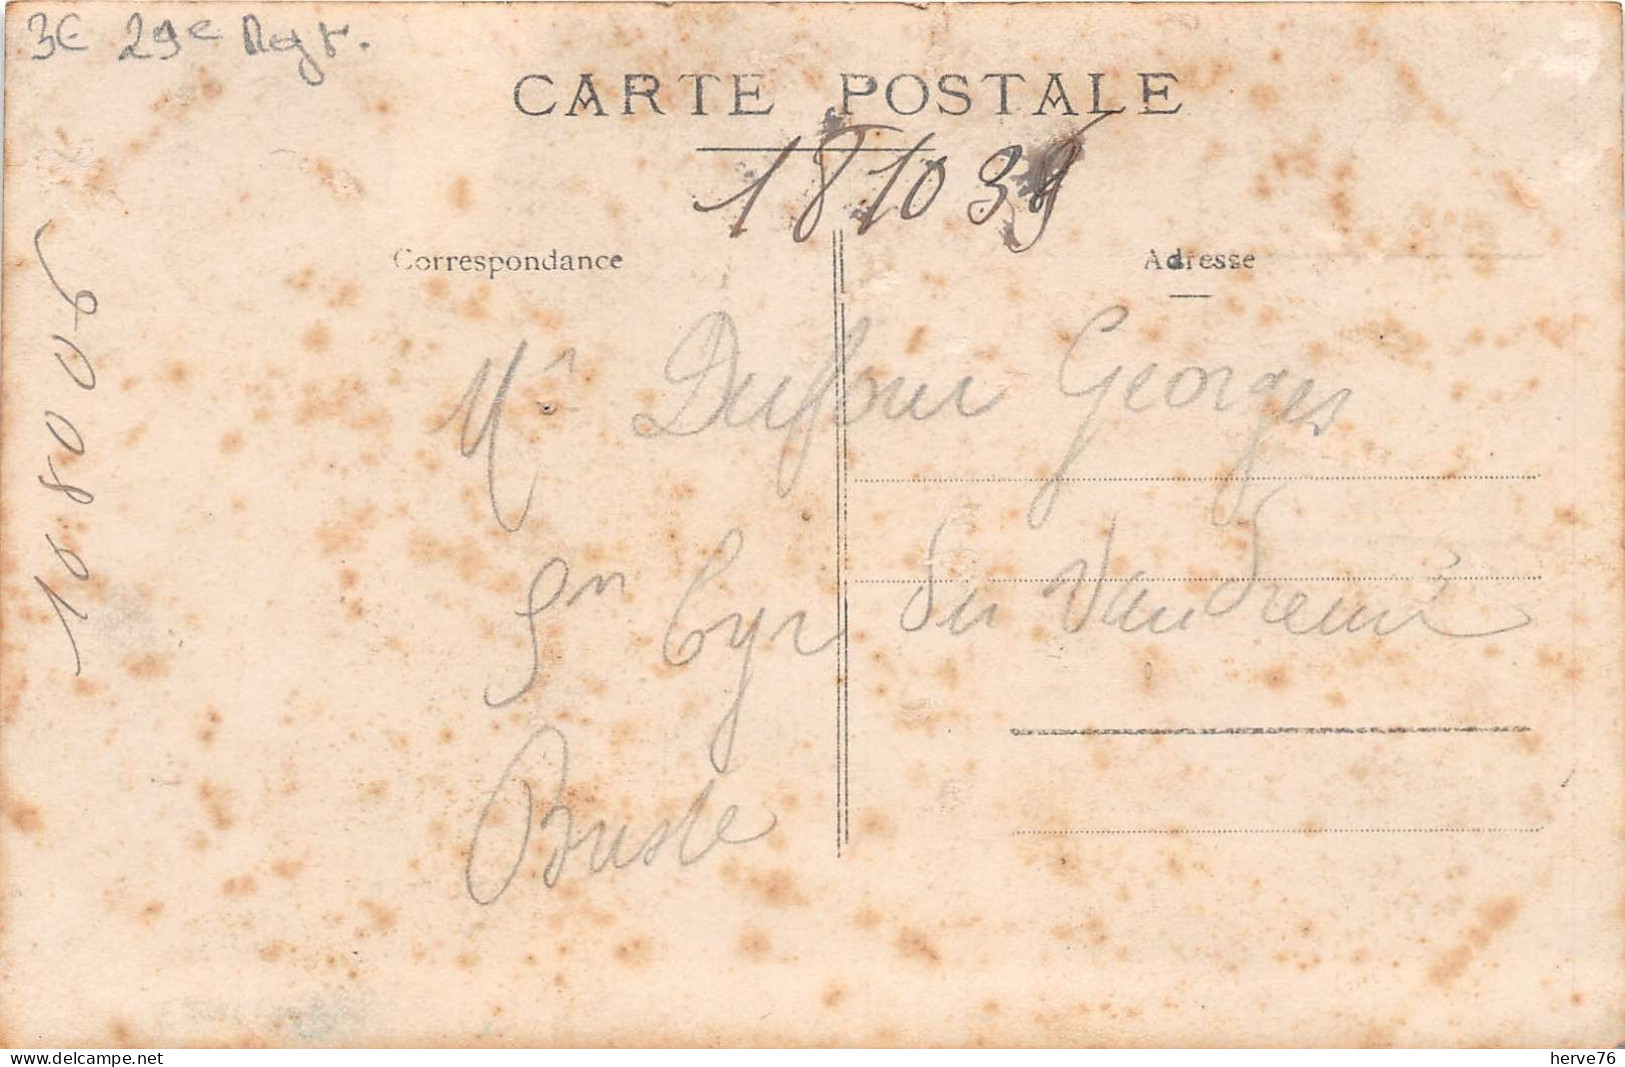 3€ 29e Regt.
CARTE POSTALE
181039
Correspondance
Adresse
Mr Dufour Georges
Cyr du Vaudreuil
Buste
delcampe.net
herve76